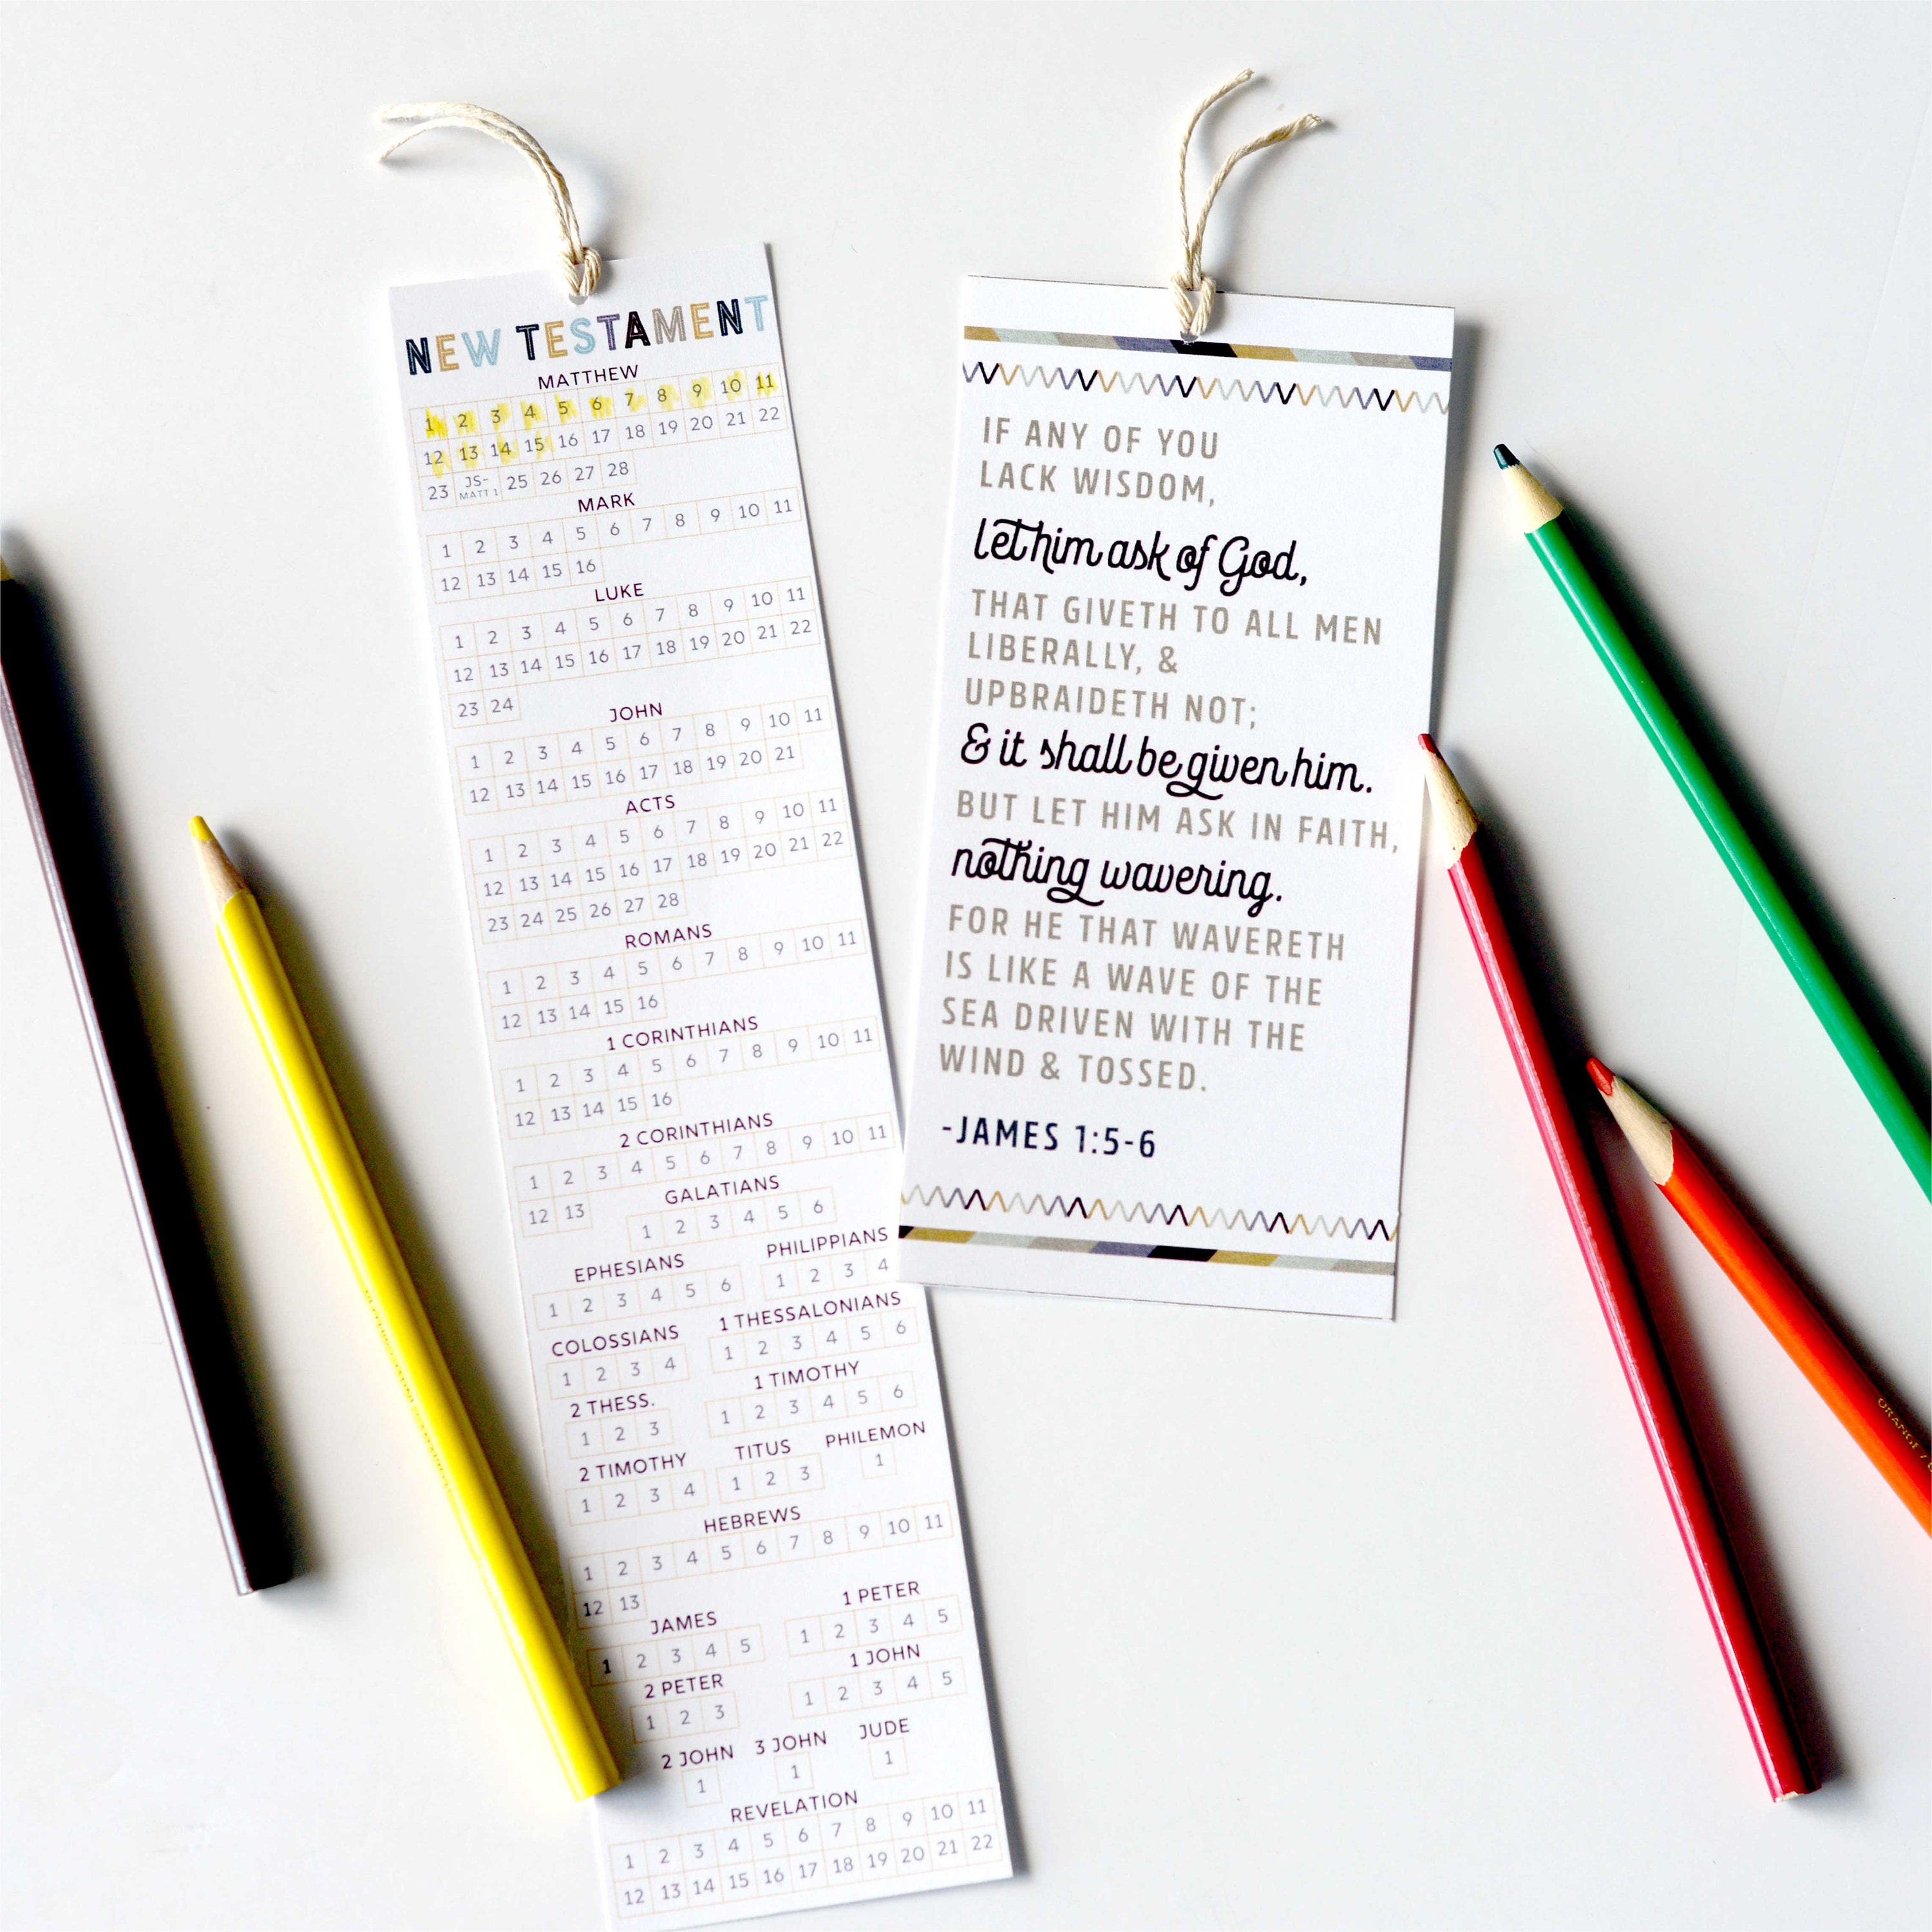 NEW TESTAMENT
MATTHEW
1 2 3 4 5 6 7 8 9 10 11
12 13 14 15 16 17 18 19 20 21 22
23 JS-MATT 1 25 26 27 28
MARK
1 2 3 4 5 6 7 8 9 10 11
12 13 14 15 16
LUKE
1 2 3 4 5 6 7 8 9 10 11
12 13 14 15 16 17 18 19 20 21 22
23 24
JOHN
1 2 3 4 5 6 7 8 9 10 11
12 13 14 15 16 17 18 19 20 21
ACTS
1 2 3 4 5 6 7 8 9 10 11
12 13 14 15 16 17 18 19 20 21 22
23 24 25 26 27 28
ROMANS
1 2 3 4 5 6 7 8 9 10 11
12 13 14 15 16
1 CORINTHIANS
1 2 3 4 5 6 7 8 9 10 11
12 13 14 15 16
2 CORINTHIANS
1 2 3 4 5 6 7 8 9 10 11
12 13
GALATIANS
1 2 3 4 5 6
EPHESIANS
1 2 3 4 5 6
PHILIPPIANS
1 2 3 4
COLOSSIANS
1 2 3 4
1 THESSALONIANS
1 2 3 4 5 6
2 THESS.
1 2 3
1 TIMOTHY
1 2 3 4 5 6
2 TIMOTHY
1 2 3 4
TITUS
1 2 3
PHILEMON
1
HEBREWS
1 2 3 4 5 6 7 8 9 10 11
12 13
JAMES
1 2 3 4 5
1 PETER
1 2 3 4 5
2 PETER
1 2 3
1 JOHN
1 2 3 4 5
2 JOHN
1
3 JOHN
1
JUDE
1
REVELATION
1 2 3 4 5 6 7 8 9 10 11
12 13 14 15 16 17 18 19 20 21 22
IF ANY OF YOU
LACK WISDOM,
let him ask of God,
THAT GIVETH TO ALL MEN
LIBERALLY, &
UPBRAIDETH NOT;
& it shall be given him.
BUT LET HIM ASK IN FAITH,
nothing wavering.
FOR HE THAT WAVERETH
IS LIKE A WAVE OF THE
SEA DRIVEN WITH THE
WIND & TOSSED.
-JAMES 1:5-6
ORANGE /